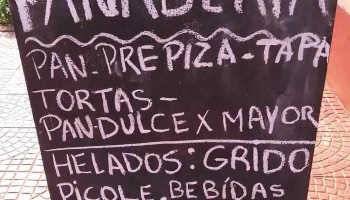 PANADERIA
PAN-PREPIZA-TAPA
TORTAS-
PAN-DULCE X MAYOR
HELADOS: GRIDO
PICOLE, BEBÍDAS